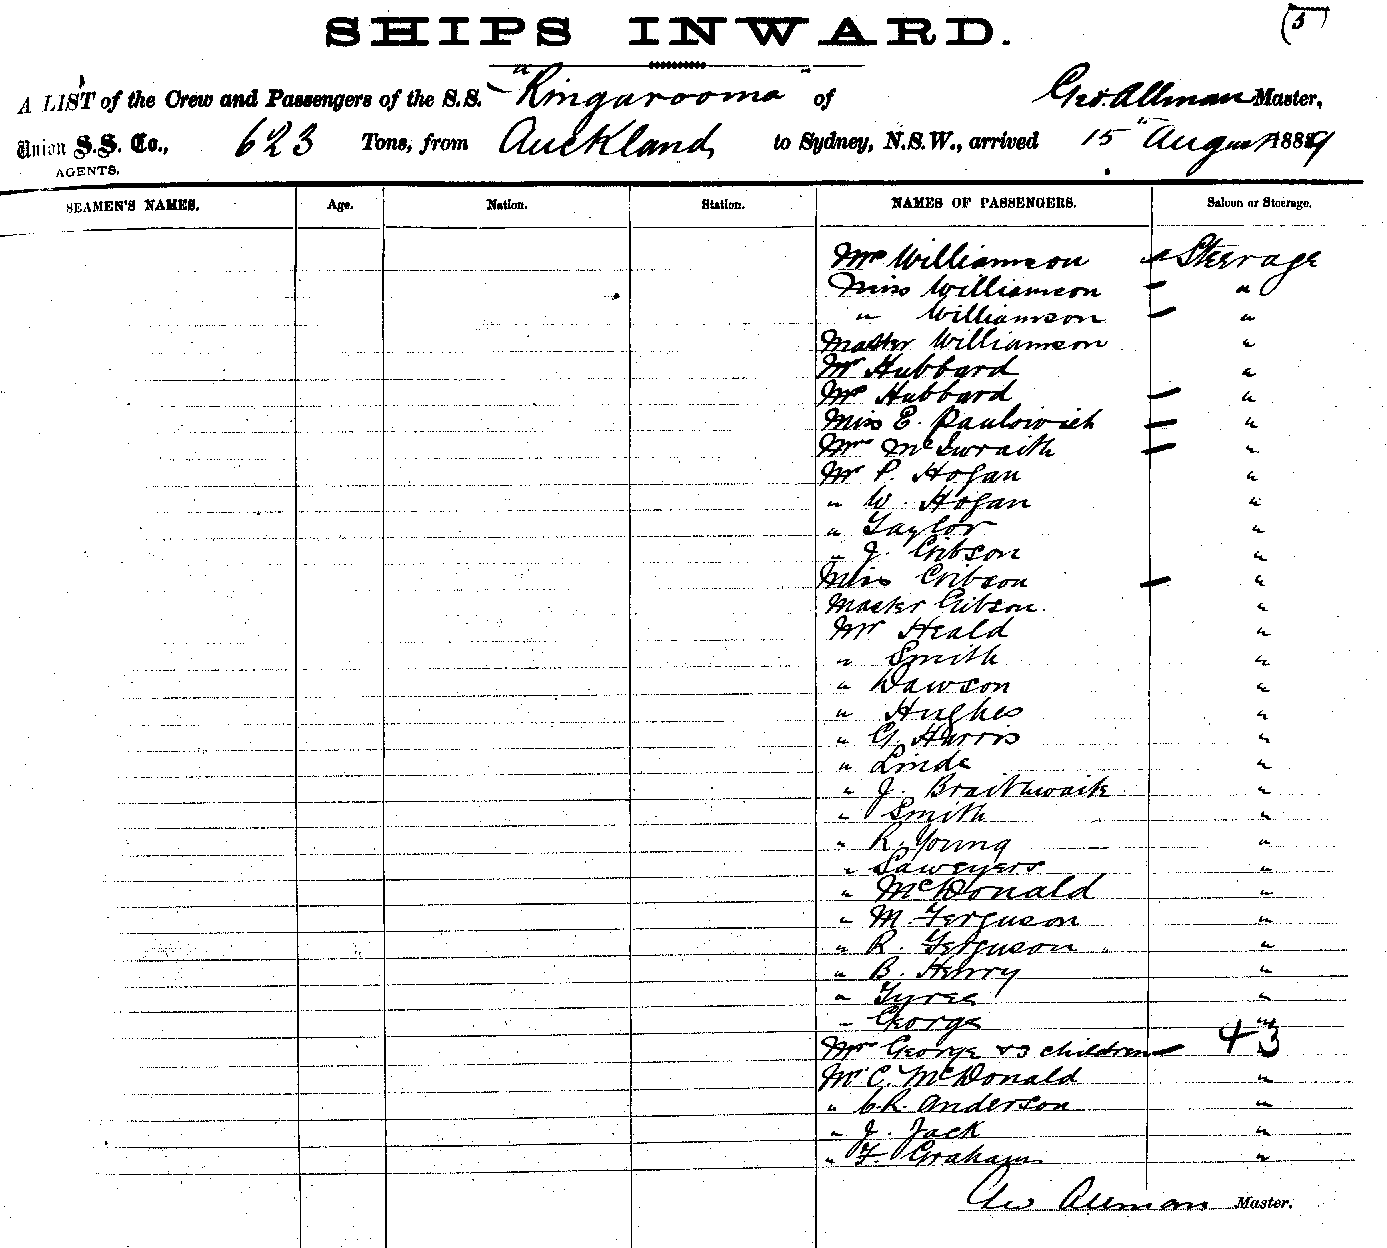 (5)
SHIPS INWARD.
A LIST of the Crew and Passengers of the S.S. "Ringarooma" of Geo. Allman Master,
Union S.S. Co., 623 Tons, from Auckland to Sydney, N.S.W., arrived 15" August 1889
AGENTS.
SEAMEN'S NAMES. Age. Nation. Station. NAMES OF PASSENGERS. Saloon or Steerage.
Mrs Williamson Steerage
Miss Williamson "
" Williamson "
Master Williamson "
Mr Hubbard "
Mrs Hubbard "
Miss E. Paulovich "
Mrs McIwraith "
Mr P. Hogan "
" W. Hogan "
" Taylor "
" J. Gibson "
Miss Gibson "
Master Gibson "
Mr Heald "
" Smith "
" Dawson "
" Hughes "
" G. Harris "
" Linde "
" J. Braithwaite "
" Smith "
" R. Young "
" Saweyers "
" McDonald "
" M. Ferguson "
" R. Ferguson "
" B. Henry "
" Tyree "
" George "
Mrs George & 3 children 43
Mr C. McDonald "
" C.R. Anderson "
" J. Jack "
" F. Graham "
Geo Allman Master.